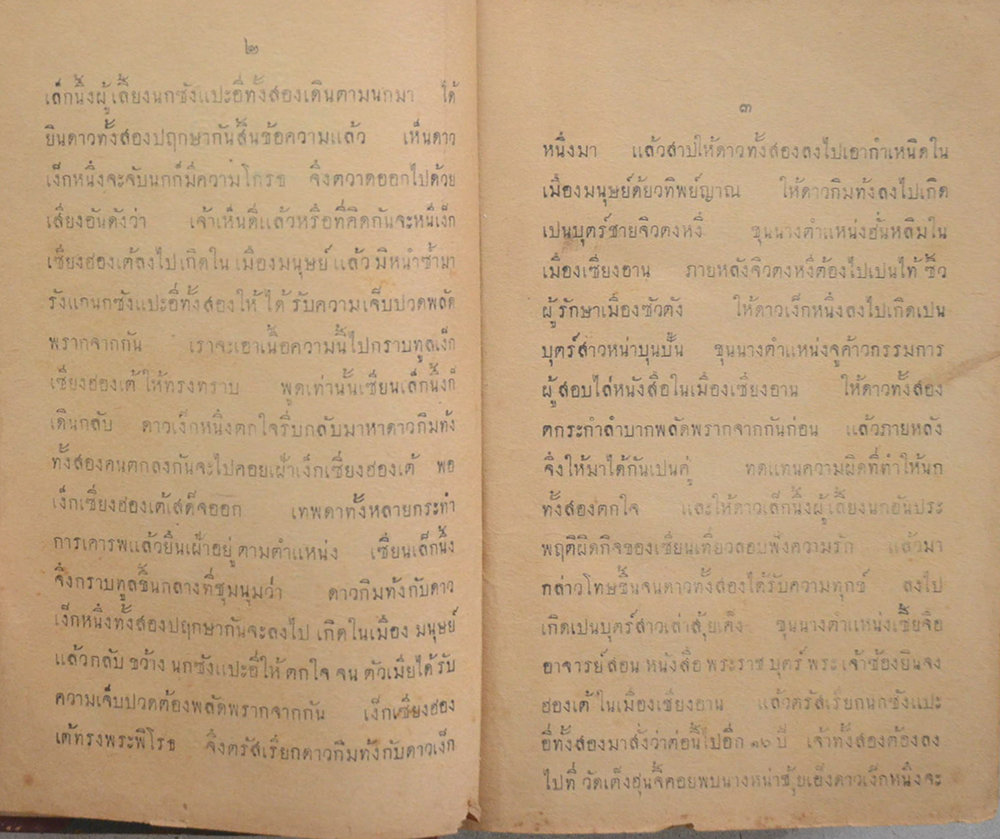 ๒
เล็กนึ้งผู้เลี้ยงนกซังแปะอี่ทั้งสองเดินตามนกมา ได้
ยินดาวทั้งสองปฤกษากันสิ้นข้อความแล้ว เห็นดาว
เง็กหนึ่งจะจับนกก็มีความโกรธ จึ่งตวาดออกไปด้วย
เสียงอันดังว่า เจ้าเห็นดีแล้วหรือที่คิดกันจะหนีเง็ก
เซียงฮ่องเต้ลงไปเกิดใน เมืองมนุษย์ แล้ว มิหนำซ้ำมา
รังแกนกซังแปะอี่ทั้งสองให้ ได้ รับความเจ็บปวดพลัด
พรากจากกัน เราจะเอาเนื้อความนี้ไปกราบทูลเง็ก
เซียงฮ่องเต้ ให้ทรงทราบ พูดเท่านั้นเซียนเล็กนึ้งก็
เดินกลับ ดาวเง็กหนึ่งตกใจรีบกลับมาหาดาวกิมท้ง
ทั้งสองคนตกลงกันจะไปคอยเฝ้าเง็กเซียงฮ่องเต้ พอ
เง็กเซียงฮ่องเต้เสด็จออก เทพดาทั้งหลายกระทำ
การเคารพแล้วยืนเฝ้าอยู่ ตามตำแหน่ง เซียนเล็กนึ้ง
จึ่งกราบทูลขึ้นกลางที่ชุมนุมว่า ดาวกิมท้งกับดาว
เง็กหนึ่งทั้งสองปฤกษากันจะลงไป เกิดในเมือง มนุษย์
แล้วกลับ ขว้าง นกซังแปะอี่ให้ ตกใจ จน ตัวเมียได้ รับ
ความเจ็บปวดต้องพลัดพรากจากกัน เง็กเซียงฮ่อง
เต้ทรงพระพิโรธ จึ่งตรัสเรียกดาวกิมท้งกับดาวเง็ก
๓
หนึ่งมา แล้วสาปให้ดาวทั้งสองลงไปเอากำเหนิดใน
เมืองมนุษย์ด้วยทิพย์ญาณ ให้ดาวกิมท้งลงไปเกิด
เปนบุตร์ชายจิวตงหงี ขุนนางตำแหน่งฮั่นหลิมใน
เมืองเซียงอาน ภายหลังจิวตงหงีต้องไปเปนไท้ ซิ่ว
ผู้รักษาเมืองซัวตัง ให้ดาวเง็กหนึ่งลงไปเกิดเปน
บุตร์สาวหน่าบุนปั้น ขุนนางตำแหน่งจูค้าวกรรมการ
ผู้สอบไล่หนังสือในเมืองเซียงอาน ให้ดาวทั้งสอง
ตกระกำลำบากพลัดพรากจากกันก่อน แล้วภายหลัง
จึ่งให้มาได้กันเปนคู่ ทดแทนความผิดที่ทำให้นก
ทั้งสองตกใจ และให้ดาวเล็กนึ้งผู้เลี้ยงนกอันประ
พฤติผิดกิจของเซียนเที่ยวลอบฟังความรัก แล้วมา
กล่าวโทษขึ้นจนดาวทั้งสองได้รับความทุกข์ ลงไป
เกิดเปนบุตร์สาวเล่าสุ้ยเค็ง ขุนนางตำแหน่งเซียจือ
อาจารย์สอน หนังสือ พระราช บุตร์ พระ เจ้าซ้องยินจง
ฮ่องเต้ ในเมืองเซียงอาน แล้วตรัสเรียกนกซังแปะ
อี่ทั้งสองมาสั่งว่าต่อนี้ไปอีก ๑๖ ปี เจ้าทั้งสองต้องลง
ไปที่ วัดเต็งฮุ่นจี้คอยพบนางหน่าซุ้ยเอ็งดาวเง็กหนึ่งจะ